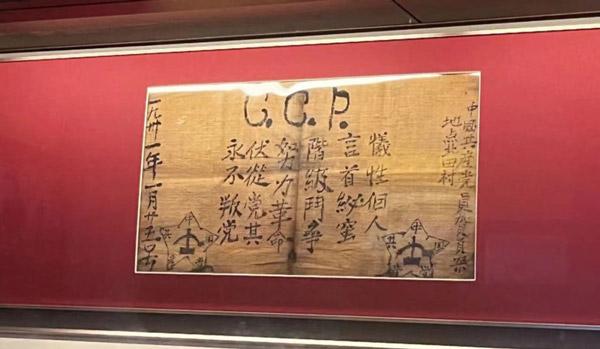 C.C.P.
中國共産党員賀頁朶
地点北田村
犧牲個人
言首秘蜜
階級鬥争
努力革命
伏從党其
永不叛党
一九卅一年一月廿五号